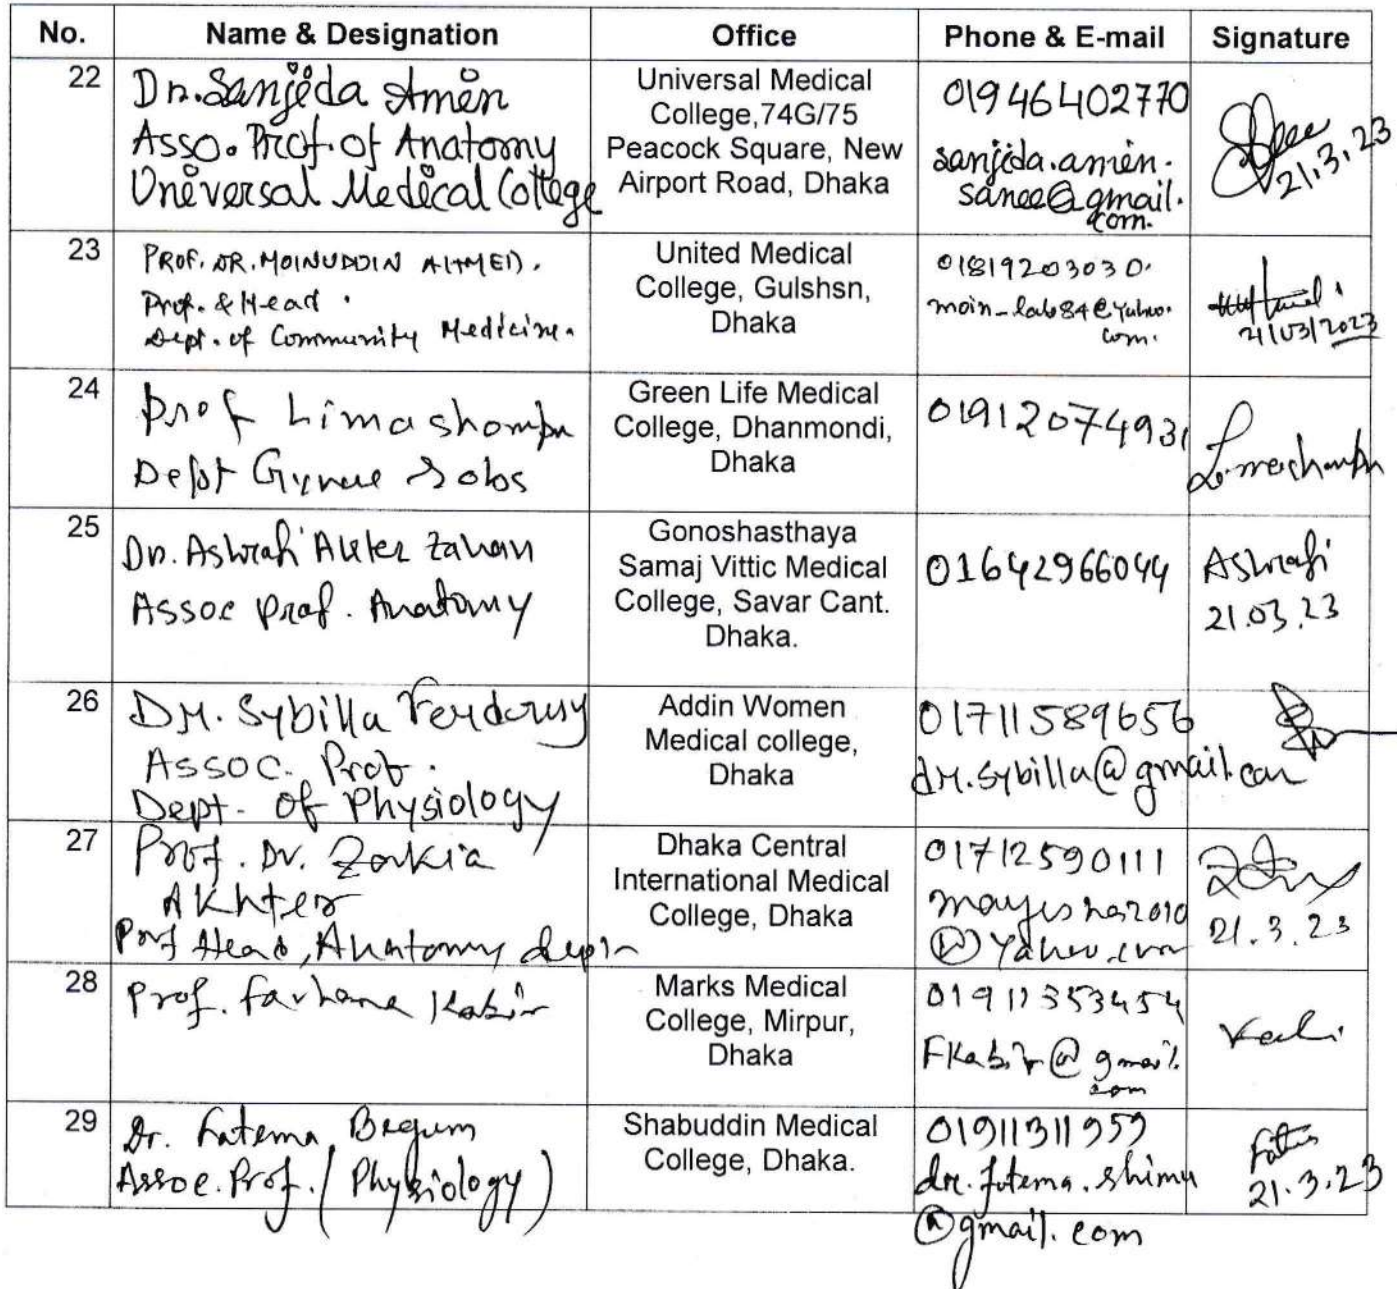 No. Name & Designation Office Phone & E-mail Signature
22
Dr. Sanjida Amin
Asso. Prof. of Anatomy
Universal Medical College
Universal Medical
College,74G/75
Peacock Square, New
Airport Road, Dhaka
01946402770
sanjida.amin.
sanee@gmail.
com.
21.3.23
23
PROF. DR. MOINUDDIN AHMED.
Prof. & Head.
Dept. of Community Medicine.
United Medical
College, Gulshsn,
Dhaka
01819203030.
moin_lab84@yahoo.
com.
21/03/2023
24
Prof Limashompa
Dept Gynae & obs
Green Life Medical
College, Dhanmondi,
Dhaka
01912074931
Limashompa
25
Dr. Ashrafi Akter Zahan
Assoc Prof. Anatomy
Gonoshasthaya
Samaj Vittic Medical
College, Savar Cant.
Dhaka.
01642966044
Ashrafi
21.03.23
26
Dr. Sybilla Ferdowsy
Assoc. Prof.
Dept. of Physiology
Addin Women
Medical college,
Dhaka
01711589656
dr.sybilla@gmail.com
27
Prof. Dr. Zakia
Akhter
Prof Head, Anatomy dept
Dhaka Central
International Medical
College, Dhaka
01712590111
mayisha2010
@yahoo.com
21.3.23
28
Prof. Farhana Kabir
Marks Medical
College, Mirpur,
Dhaka
01911353454
FKabir@gmail.
com
29
Dr. Fatema Begum
Assoc. Prof. (Physiology)
Shabuddin Medical
College, Dhaka.
01911311959
dr.fatema.shimu
@gmail.com
21.3.23